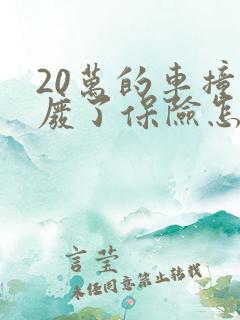 20萬的車撞
廢了保險怎
言瑩
未經同意禁止轉載